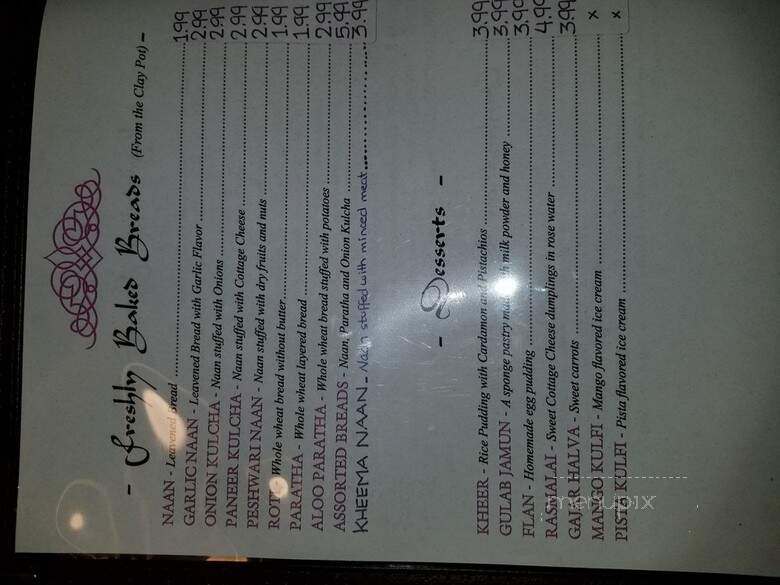 - Freshly Baked Breads (From the Clay Pot) -
NAAN - Leavened Bread 1.99
GARLIC NAAN - Leavened Bread with Garlic Flavor 2.99
ONION KULCHA - Naan stuffed with Onions 2.99
PANEER KULCHA - Naan stuffed with Cottage Cheese 2.99
PESHWARI NAAN - Naan stuffed with dry fruits and nuts 2.99
ROTI - Whole wheat bread without butter 1.99
PARATHA - Whole wheat layered bread 1.99
ALOO PARATHA - Whole wheat bread stuffed with potatoes 2.99
ASSORTED BREADS - Naan, Paratha and Onion Kulcha 5.99
KHEEMA NAAN - Naan stuffed with minced meat 3.99
- Desserts -
KHEER - Rice Pudding with Cardamon and Pistachios 3.99
GULAB JAMUN - A sponge pastry made with milk powder and honey 3.99
FLAN - Homemade egg pudding 3.99
RASMALAI - Sweet Cottage Cheese dumplings in rose water 4.99
GAJAR HALVA - Sweet carrots 3.99
MANGO KULFI - Mango flavored ice cream x
PISTA KULFI - Pista flavored ice cream x
menupix